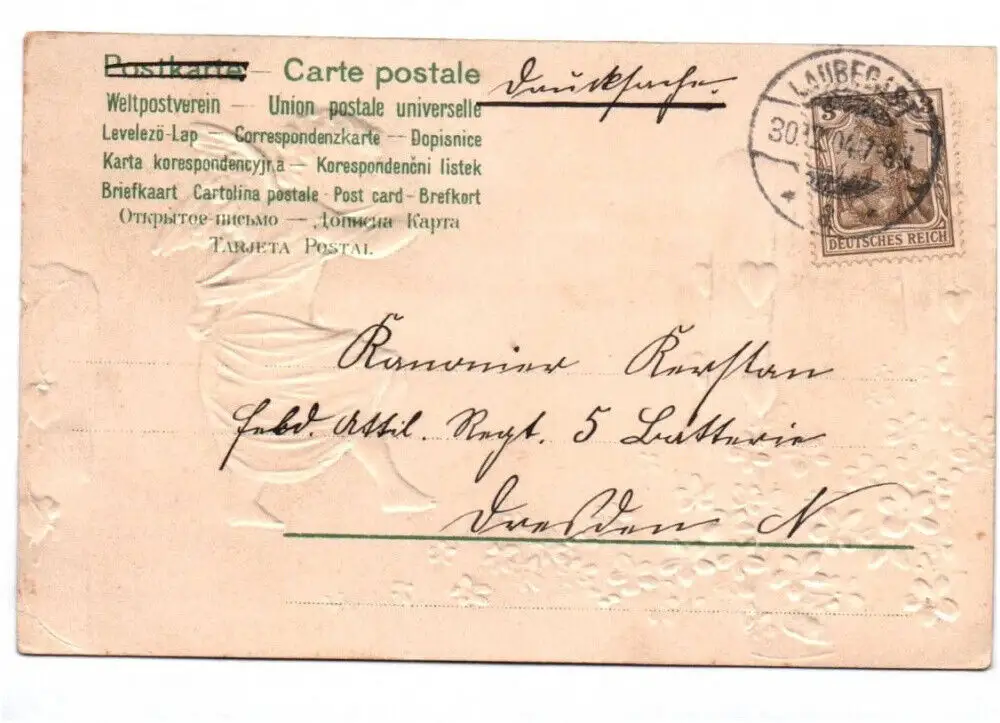 Postkarte – Carte postale
Drucksache.
Weltpostverein – Union postale universelle
Levelező-Lap – Correspondenzkarte – Dopisnice
Karta korespondencyjna – Korespondenční listek
Briefkaart Cartolina postale - Post card - Brefkort
Открытое письмо – Дописна Карта
TARJETA POSTAL
LAUBEGAST
30.12.04. 7-8N.
3
DEUTSCHES REICH
Kanonier Kerstan
Feld. Attil. Regt. 5 Batterie
Dresden N